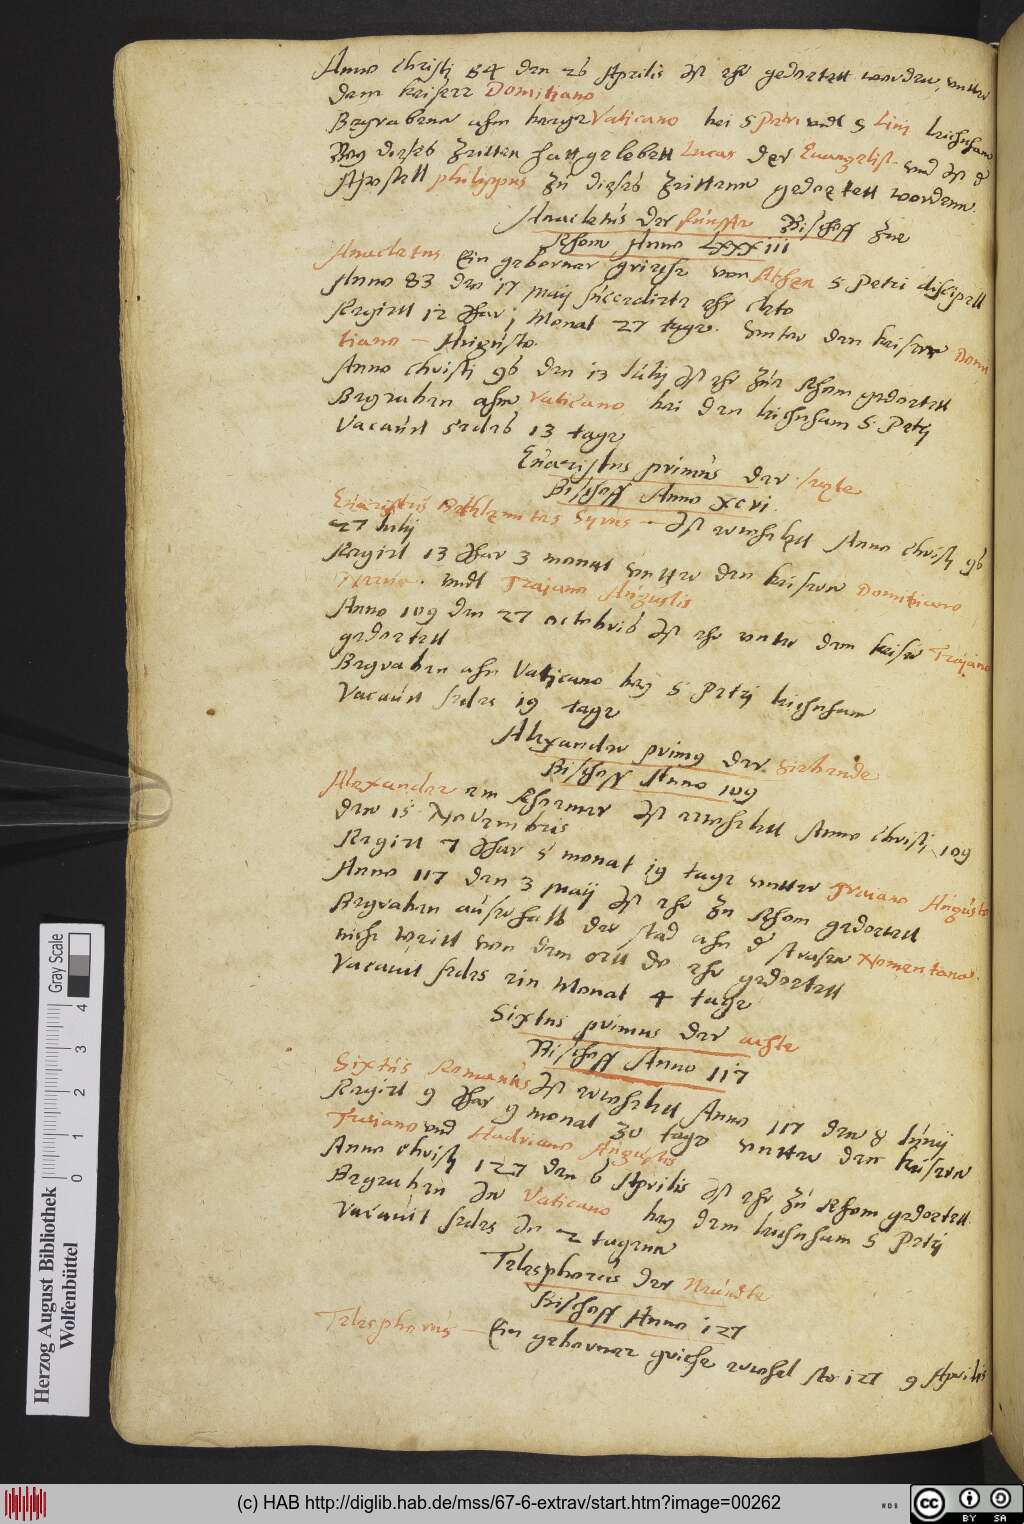 Anno Christj 84 den 26 Aprilis Ist ehr gedoetett worden, unttr
dem keiserr Domitiano
Begraben ahm berge Vaticano bei S Petri undt S Linj leichnam
Bey dieses Zeitten hatt gelebett Lucas der Euangelist und Ist d
Apostell philippus Zu dieses Zeittenn gedoetett wordenn.
Anacletus der funffte Bischoff Zue
Rhom Anno LXXXIII
Anacletus Ein geborner grieche von Athen S Petri discipell
Anno 83 den 17 Maij succedirte ehr Cleto
Regirtt 12 Jhar j Monat 27 tage. Untter den keisern Domi
tiano Augusto.
Anno Christi 96 den 13 Julij Ist ehr Zue Rhom gedoetett
Begraben ahm Vaticano bei den leichnam S Petrj
Vacauit sedes 13 tage
Euaristus primus der sexte
Bischoff Anno XCVI.
Euaristus Bethlemites Syrus Ist erwehlett Anno Christj 96
27 Julij
Regirt 13 Jhar 3 monat untter den keisern Domitiano
Nerua. undt Trajano Augustis
Anno 109 den 27 octobris Ist ehr unter dem keiser Trajano
gedoetett
Begraben ahm Vaticano bey S Petrj leichnam
Vacauit sedes 19 tage
Alexander primus der Siebende
Bischoff Anno 109
Alexander ein Rhoemer Ist erwehlett Anno Christj 109
den 15 Novembris
Regirt 7 Jhar 5 monat 19 tage untter Traiano Augusto
Anno 117 den 3 Maij Ist ehr Zu Rhom gedoetett
Begraben ausserhalb der stad ahn d strasen Nomentano.
nicht weitt von dem ortt do ehr gedoetett
Vacauit sedes ein Monat 4 tage
Sixtus primus der achte
Bischoff Anno 117
Sixtus Romanus Ist erwehlett Anno 117 den 8 Junij
Regirt 9 Jhar 9 monat 30 tage untter den keisern
Traiano und Hadriano Augustis
Anno Christj 127 den 6 Aprilis Ist ehr Zu Rhom gedoetett
Begraben Im Vaticano bey dem leichnam S Petrj
Vacauit sedes In 2 tagenn
Telesphorus der Neundte
Bischoff Anno 127
Telesphorus Ein geborner grieche erwehlt Ao 127 9 Aprilis
Herzog August Bibliothek
Wolfenbüttel
0 1 2 3 4
Gray Scale
(c) HAB http://diglib.hab.de/mss/67-6-extrav/start.htm?image=00262
WDB
cc BY SA